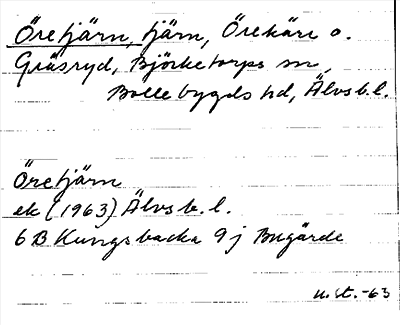 Öretjärn, tjärn, Örekärr o.
Gräsryd, Björketorps sn,
Bollebygds hd, Älvsb.l.
Öretjärn
ek (1963) Älvsb.l.
6B Kungsbacka 9j Bugärde
u.st.-63